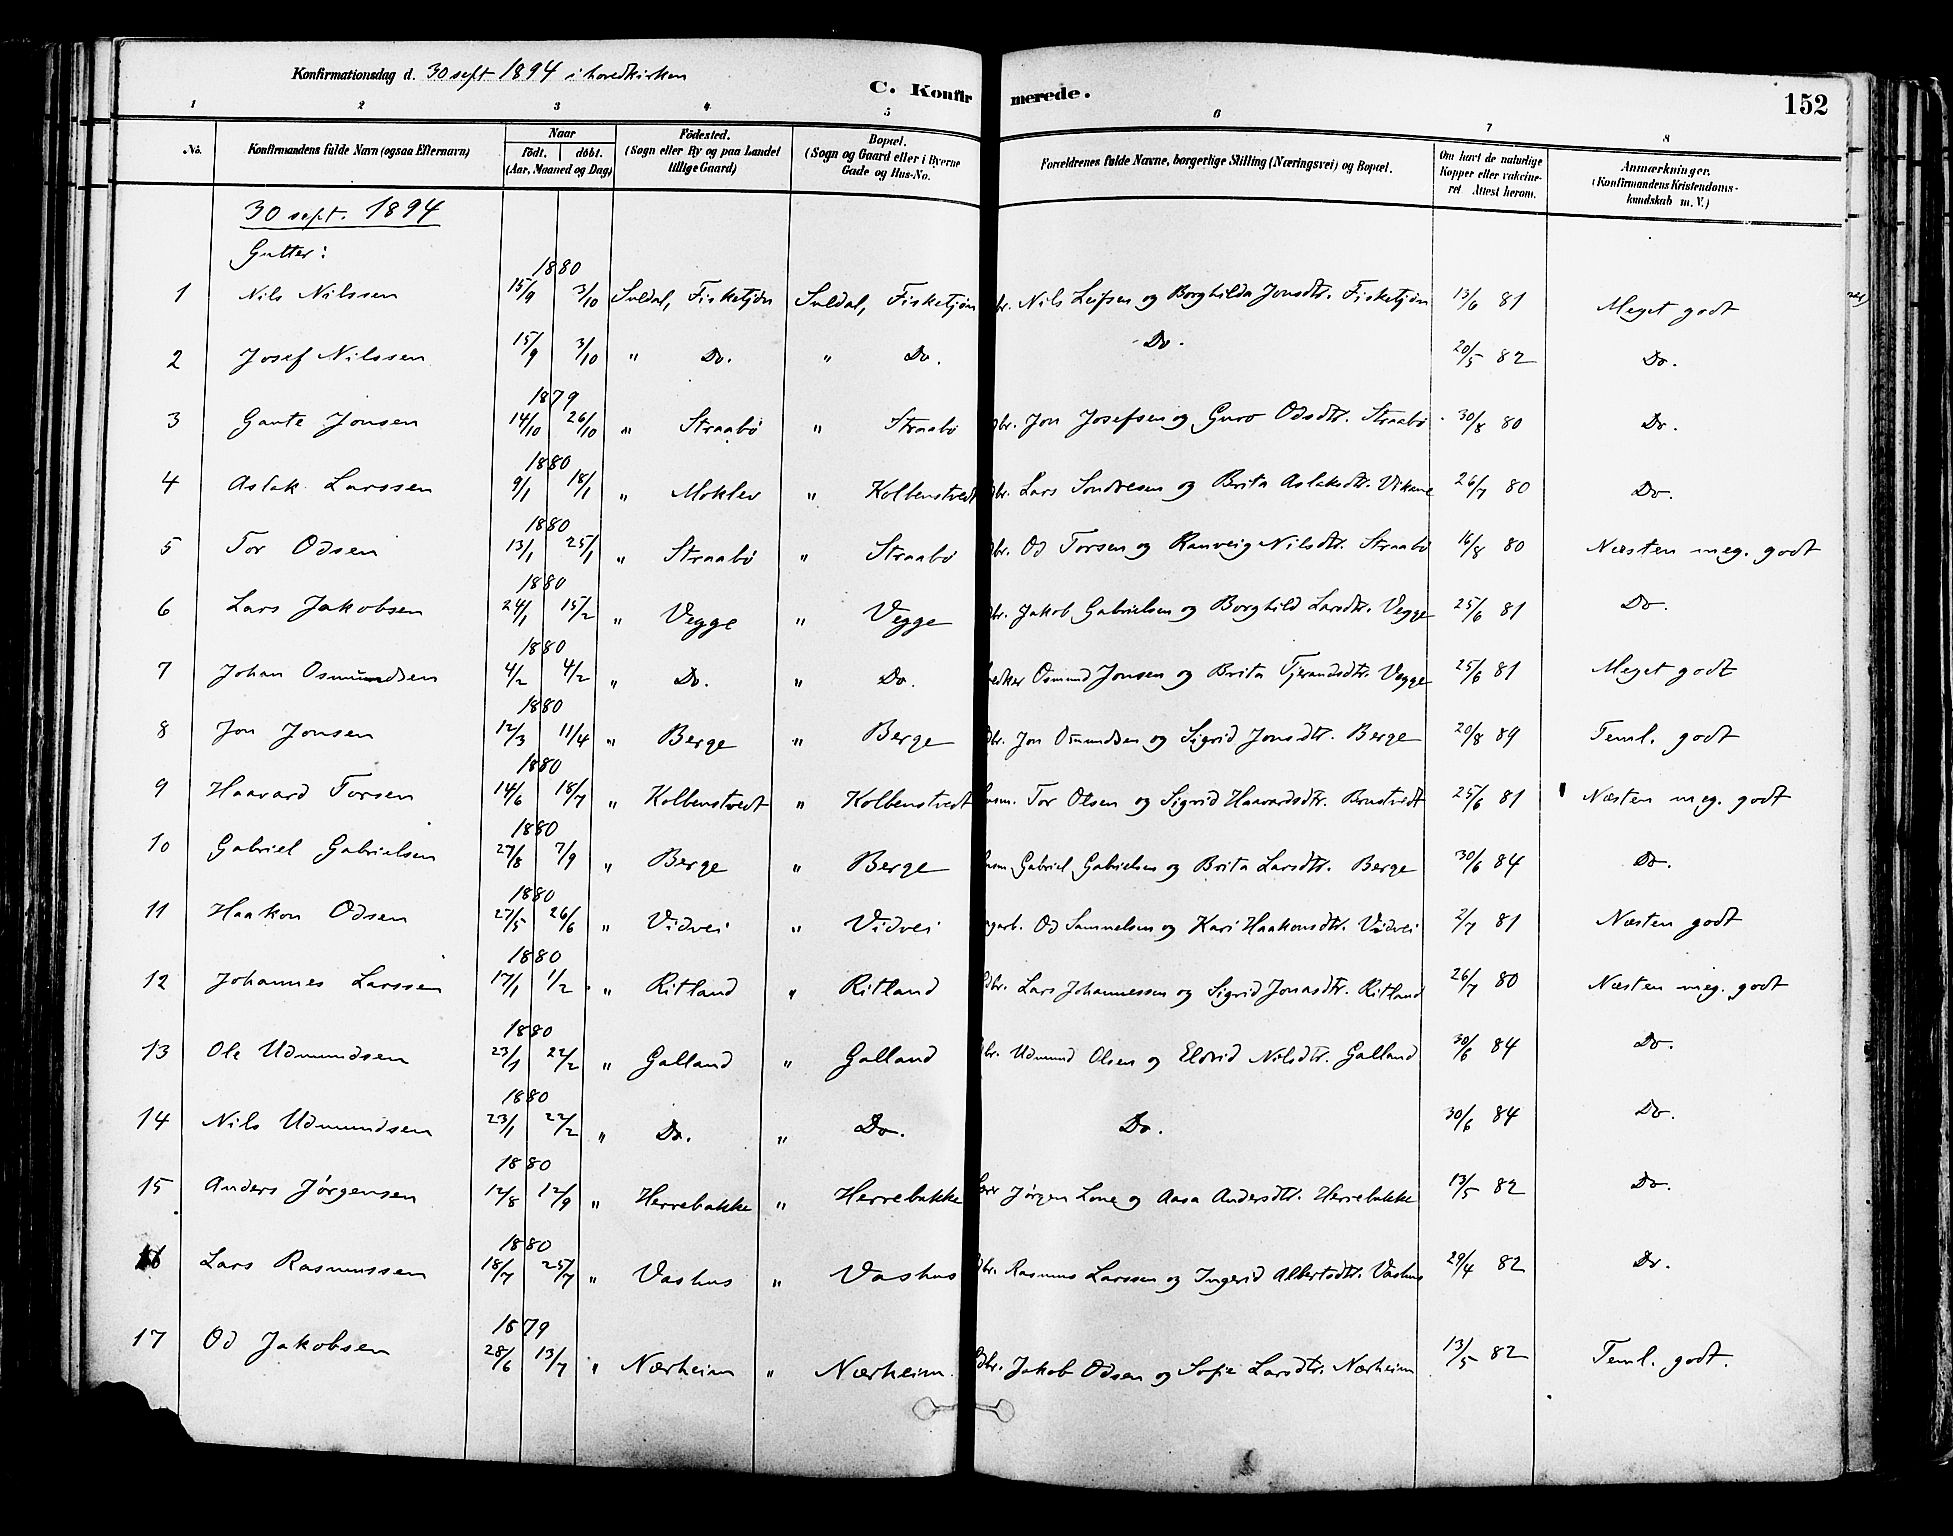 Konfirmationsdag d. 30 sept 1894 i hovedkirken
C. Konfirmerede.
152
1 2 3 4 5 6 7 8
No. Konfirmandens fulde Navn (ogsaa Efternavn) Naar født. døbt. (Aar, Maaned og Dag) Fødested. (Sogn eller By og paa Landet tillige Gaard) Bopæl. (Sogn og Gaard eller i Byerne Gade og Hus-No. Forældrenes fulde Navne, borgerlige Stilling (Næringsvei) og Bopæl. Om havt de naturlige Kopper eller vakcineret Attest herom. Anmærkninger. (Konfirmandens Kristendomskundskab m. V.)
30 sept. 1894
Gutter:
1880
1 Nils Nilssen 15/9 3/10 Suldal, Fisketjøn Suldal, Fisketjøn br. Nils Leifsen og Borghilda Jonsdtr. Fisketjøn 13/6 81 Meget godt
2 Josef Nilssen 15/9 3/10 " Do. " Do. Do. 20/5 82 Do.
1879
3 Gaute Jonsen 14/10 26/10 " Straabø " Straabø br. Jon Josefsen og Guro Odsdtr. Straabø 30/8 80 Do.
1880
4 Aslak Larssen 9/1 18/1 " Moklev " Kolbenstvedt br. Lars Sondresen og Brita Aslaksdtr. Vikane 26/7 80 Do.
1880
5 Tor Odsen 13/1 25/1 " Straabø " Straabø br. Od Torsen og Ranveig Nilsdtr. Straabø 16/8 80 Næsten meg. godt
1880
6 Lars Jakobsen 24/1 15/2 " Vegge " Vegge br. Jakob Gabrielsen og Borghild Larsdtr. Vegge 25/6 81 Do.
1880
7 Johan Osmundsen 4/2 4/2 " Do. " Do. Osmund Jonsen og Brita Tjerandsdtr. Vegge 25/6 81 Meget godt
1880
8 Jon Jonsen 12/3 11/4 " Berge " Berge br. Jon Osmundsen og Sigrid Jonsdtr. Berge 20/8 89 Teml. godt
1880
9 Haavard Torsen 14/6 18/7 " Kolbenstvedt " Kolbenstvedt Tor Olsen og Sigrid Haavardsdtr. Brustvedt 25/6 81 Næsten meg. godt
1880
10 Gabriel Gabrielsen 27/8 7/9 " Berge " Berge Gabriel Gabrielsen og Brita Larsdtr. Berge 30/6 84 Do.
1880
11 Haakon Odsen 27/5 26/6 " Vidvei " Vidvei Od Samuelsen og Kari Haakonsdtr. Vidvei 2/7 81 Næsten godt
1880
12 Johannes Larssen 17/1 1/2 " Ritland " Ritland br. Lars Johannessen og Sigrid Jonasdtr. Ritland 26/7 80 Næsten meg. godt
1880
13 Ole Udmundsen 23/1 22/2 " Galland " Galland br. Udmund Olsen og Eldrid Nilsdtr. Galland 30/6 84 Do.
1880
14 Nils Udmundsen 23/1 22/2 " Do. " Do. Do. 30/6 84 Do.
1880
15 Anders Jørgensen 12/8 12/9 " Herrebakke " Herrebakke Jørgen Lone og Aasa Andersdtr. Herrebakke 13/5 82 Do.
1880
16 Lars Rasmussen 18/7 25/7 " Vashus " Vashus br. Rasmus Larssen og Ingerid Albertsdtr. Vashus 29/4 82 Do.
1879
17 Od Jakobsen 28/6 13/7 " Nærheim " Nærheim br. Jakob Odsen og Sofie Larsdtr. Nærheim 13/5 82 Teml. godt.